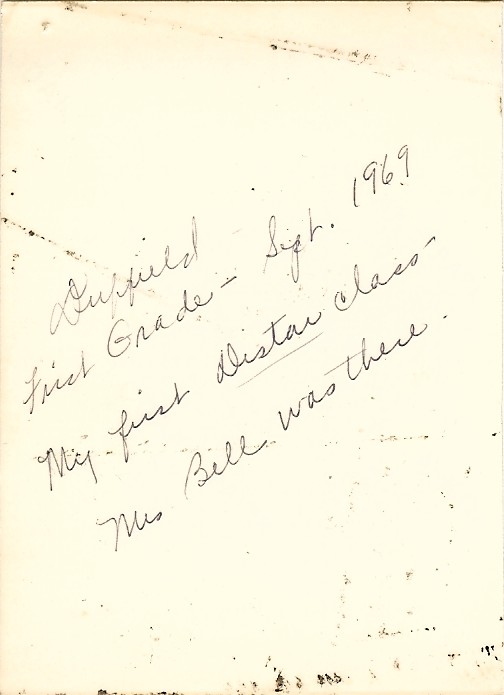 Duffield
First Grade - Sept. 1969
My first Distar class -
Mrs Bell was there.